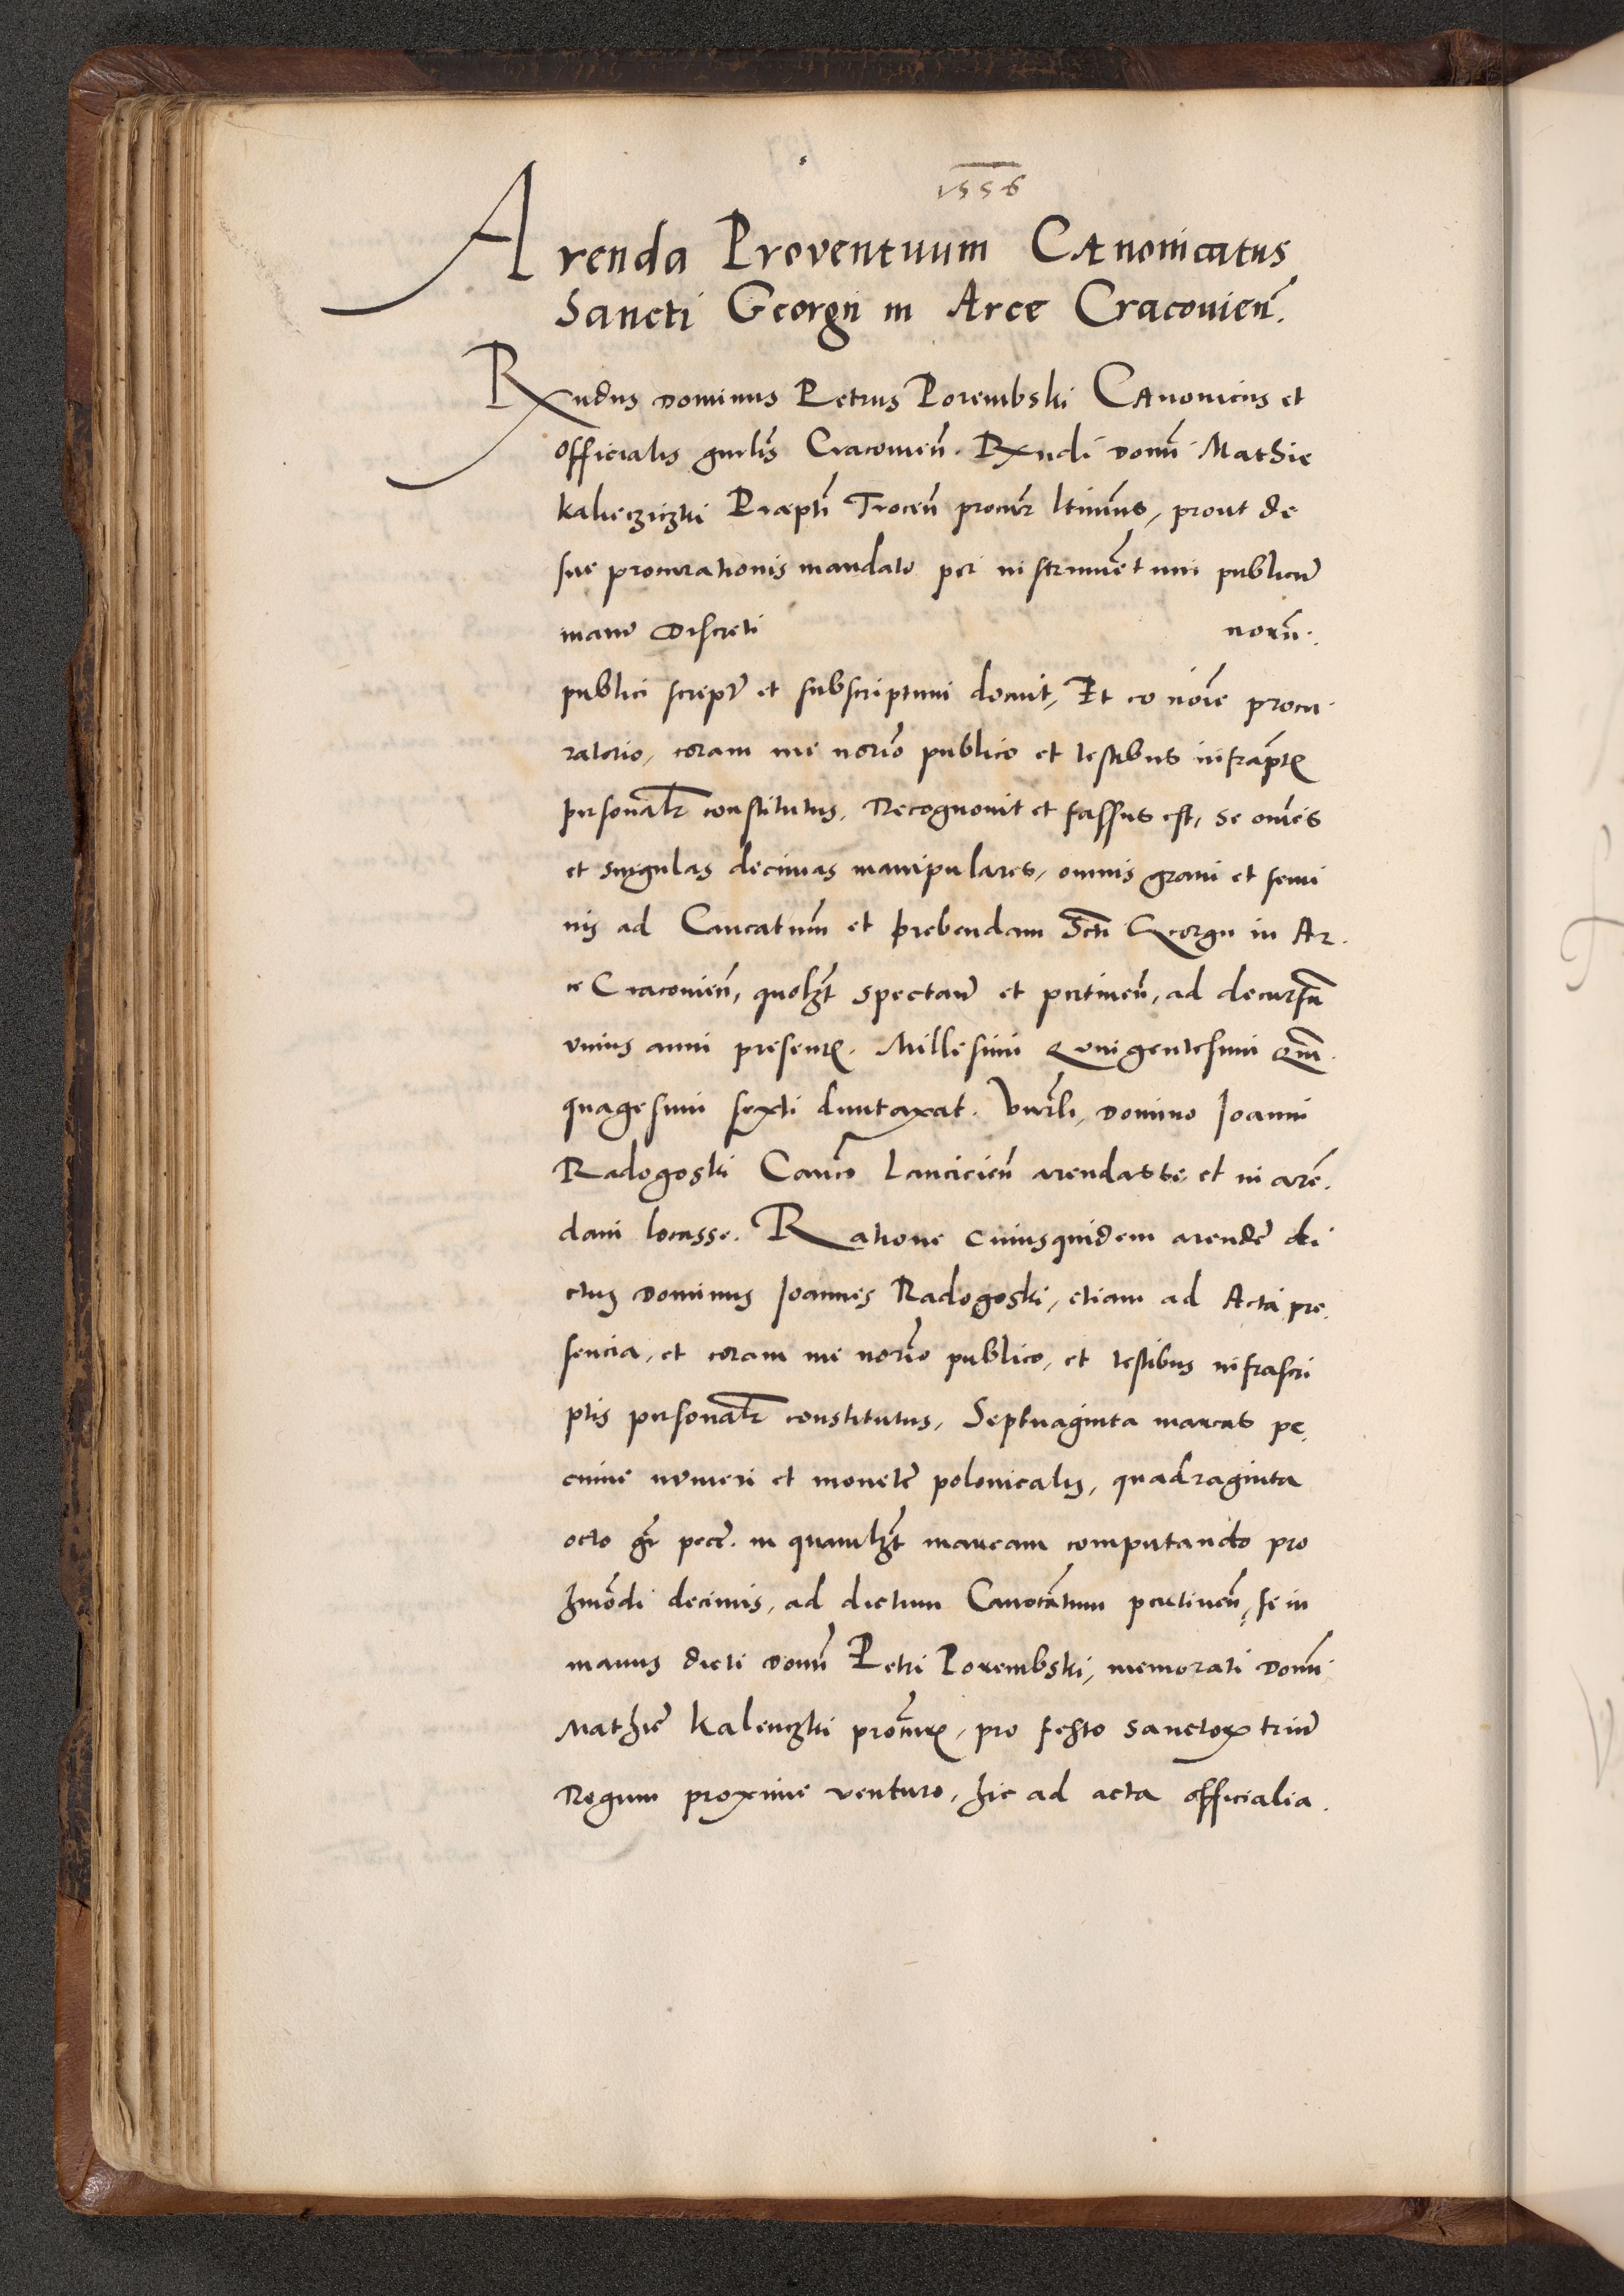 1556
Arenda Proventuum Canonicatus
Sancti Georgii in Arce Cracovien̄.
Rx̄ndus Dominus Petrus Porembski Canonicus et
Officialis gn̄rlis Cracovien̄. Rx̄ndi Domī Mathie
Kaliecziczki Praeptī Trocen̄ procur̄ ltimus, prout de
sue procurationis mandato per instrumētum publicū
manu Discreti norī.
publici script̄ et subscriptum docuit, Et eo nōie procu
ratorio, coram me norīo publico et testibus infrap̄tis
personalr̄ constitutus, Recognovit et fassus est, se omnes
et singulas decimas manipulares, omnis grani et semi
nis ad Cancatum̄ et prebendam Sctī Georgii in Ar
ce Cracovien̄, quolzt̄ spectan̄ et pertinen̄, ad decursū
unius anni presentis. Millesimi Quingentesimi Quin̄
quagesimi sexti duntaxat. Vnr̄li, Domino Joanni
Radogoski Cancō Lancicien̄ arendasse et in arē
dam locasse. Ratione cuiusquidem arende di
ctus Dominus Joannes Radogoski, etiam ad Acta pre
sencia, et coram me norīo publico, et testibus infrascri
ptis personalr̄ constitutus, Septuaginta marcas pe
cunie numeri et monete polonicalis, quadraginta
octo gr̄ pecc. in quamlzt̄ marcam computando pro
hmōdi decimis, ad dictum Canocātum pertinen̄, se in
manus dicti Domī Petri Porembski, memorati Domī
Mathie Kalenczki procuris, pro festo sanctorum triū
Regum proxime venturo, hic ad acta officialia